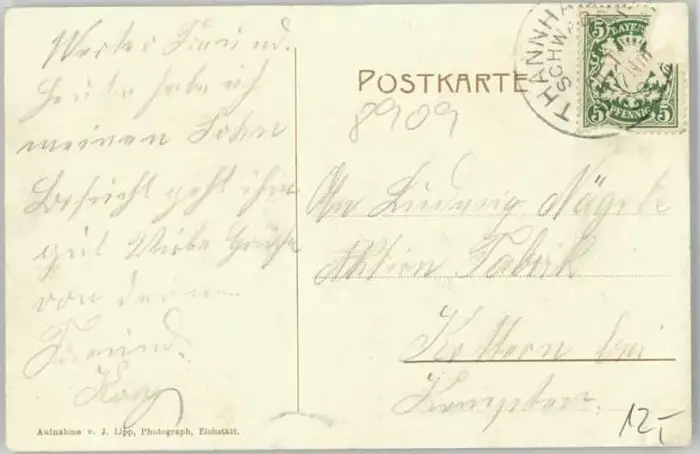 Werter Freund.
Heute habe ich
meinen Sohn
besucht geht ihm
gut Viele Grüße
von deinem
Freund.
POSTKARTE
8909
THANNHA
SCHWABEN
5 BAYERN 5
5 PFENNIG 5
An Ludwig Nägele
Aktien Fabrik
Kottern bei
Kempten.
12,-
Aufnahme v. J. Lipp, Photograph, Eichstätt.